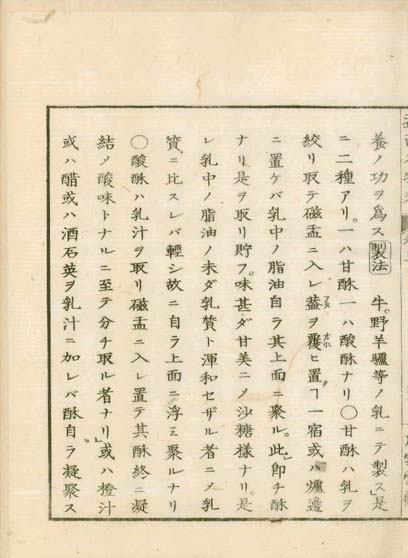 養ノ功ヲ爲ス製法 牛。野羊驢等ノ乳ニテ製ス」是
ニ二種アリ。一ハ甘酥一ハ酸酥ナリ〇甘酥ハ乳ヲ
絞リ取テ磁盂ニ入レ葢ヲ覆ヒ置ヿ一宿或ハ爐邉
ニ置ケバ乳中ノ脂油自ラ其上面ニ聚ル。此」卽チ酥
ナリ是ヲ取リ貯フ。味甚ダ甘美ニメ沙糖様ナリ。是
レ乳中ノ脂油ノ未ダ乳質ト渾和セザル者ニメ乳
質ニ比スレバ輕シ故ニ自ラ上面ニ浮ミ聚ルナリ
〇酸酥ハ乳汁ヲ取リ磁盂ニ入レ置テ其酥終ニ凝
結メ酸味トナルニ至テ分チ取ル者ナリ」或ハ橙汁
或ハ醋或ハ酒石英ヲ乳汁ニ加レバ酥自ラ凝聚ス